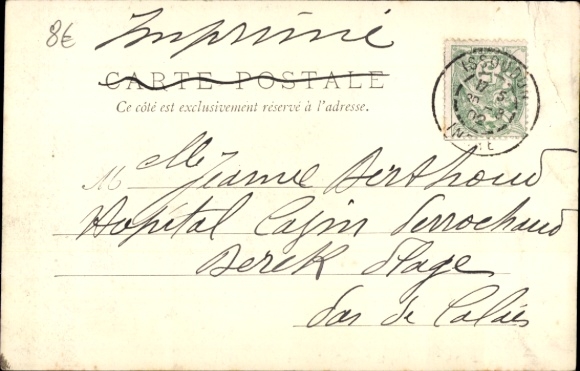 8€
Imprimé
CARTE POSTALE
Ce côté est exclusivement réservé à l'adresse.
Melle Jeanne Berthoud
Hopital Cazin Perrochaud
Berck Plage
Pas de Calais
ISSOUDUN
17 5
02
INDRE